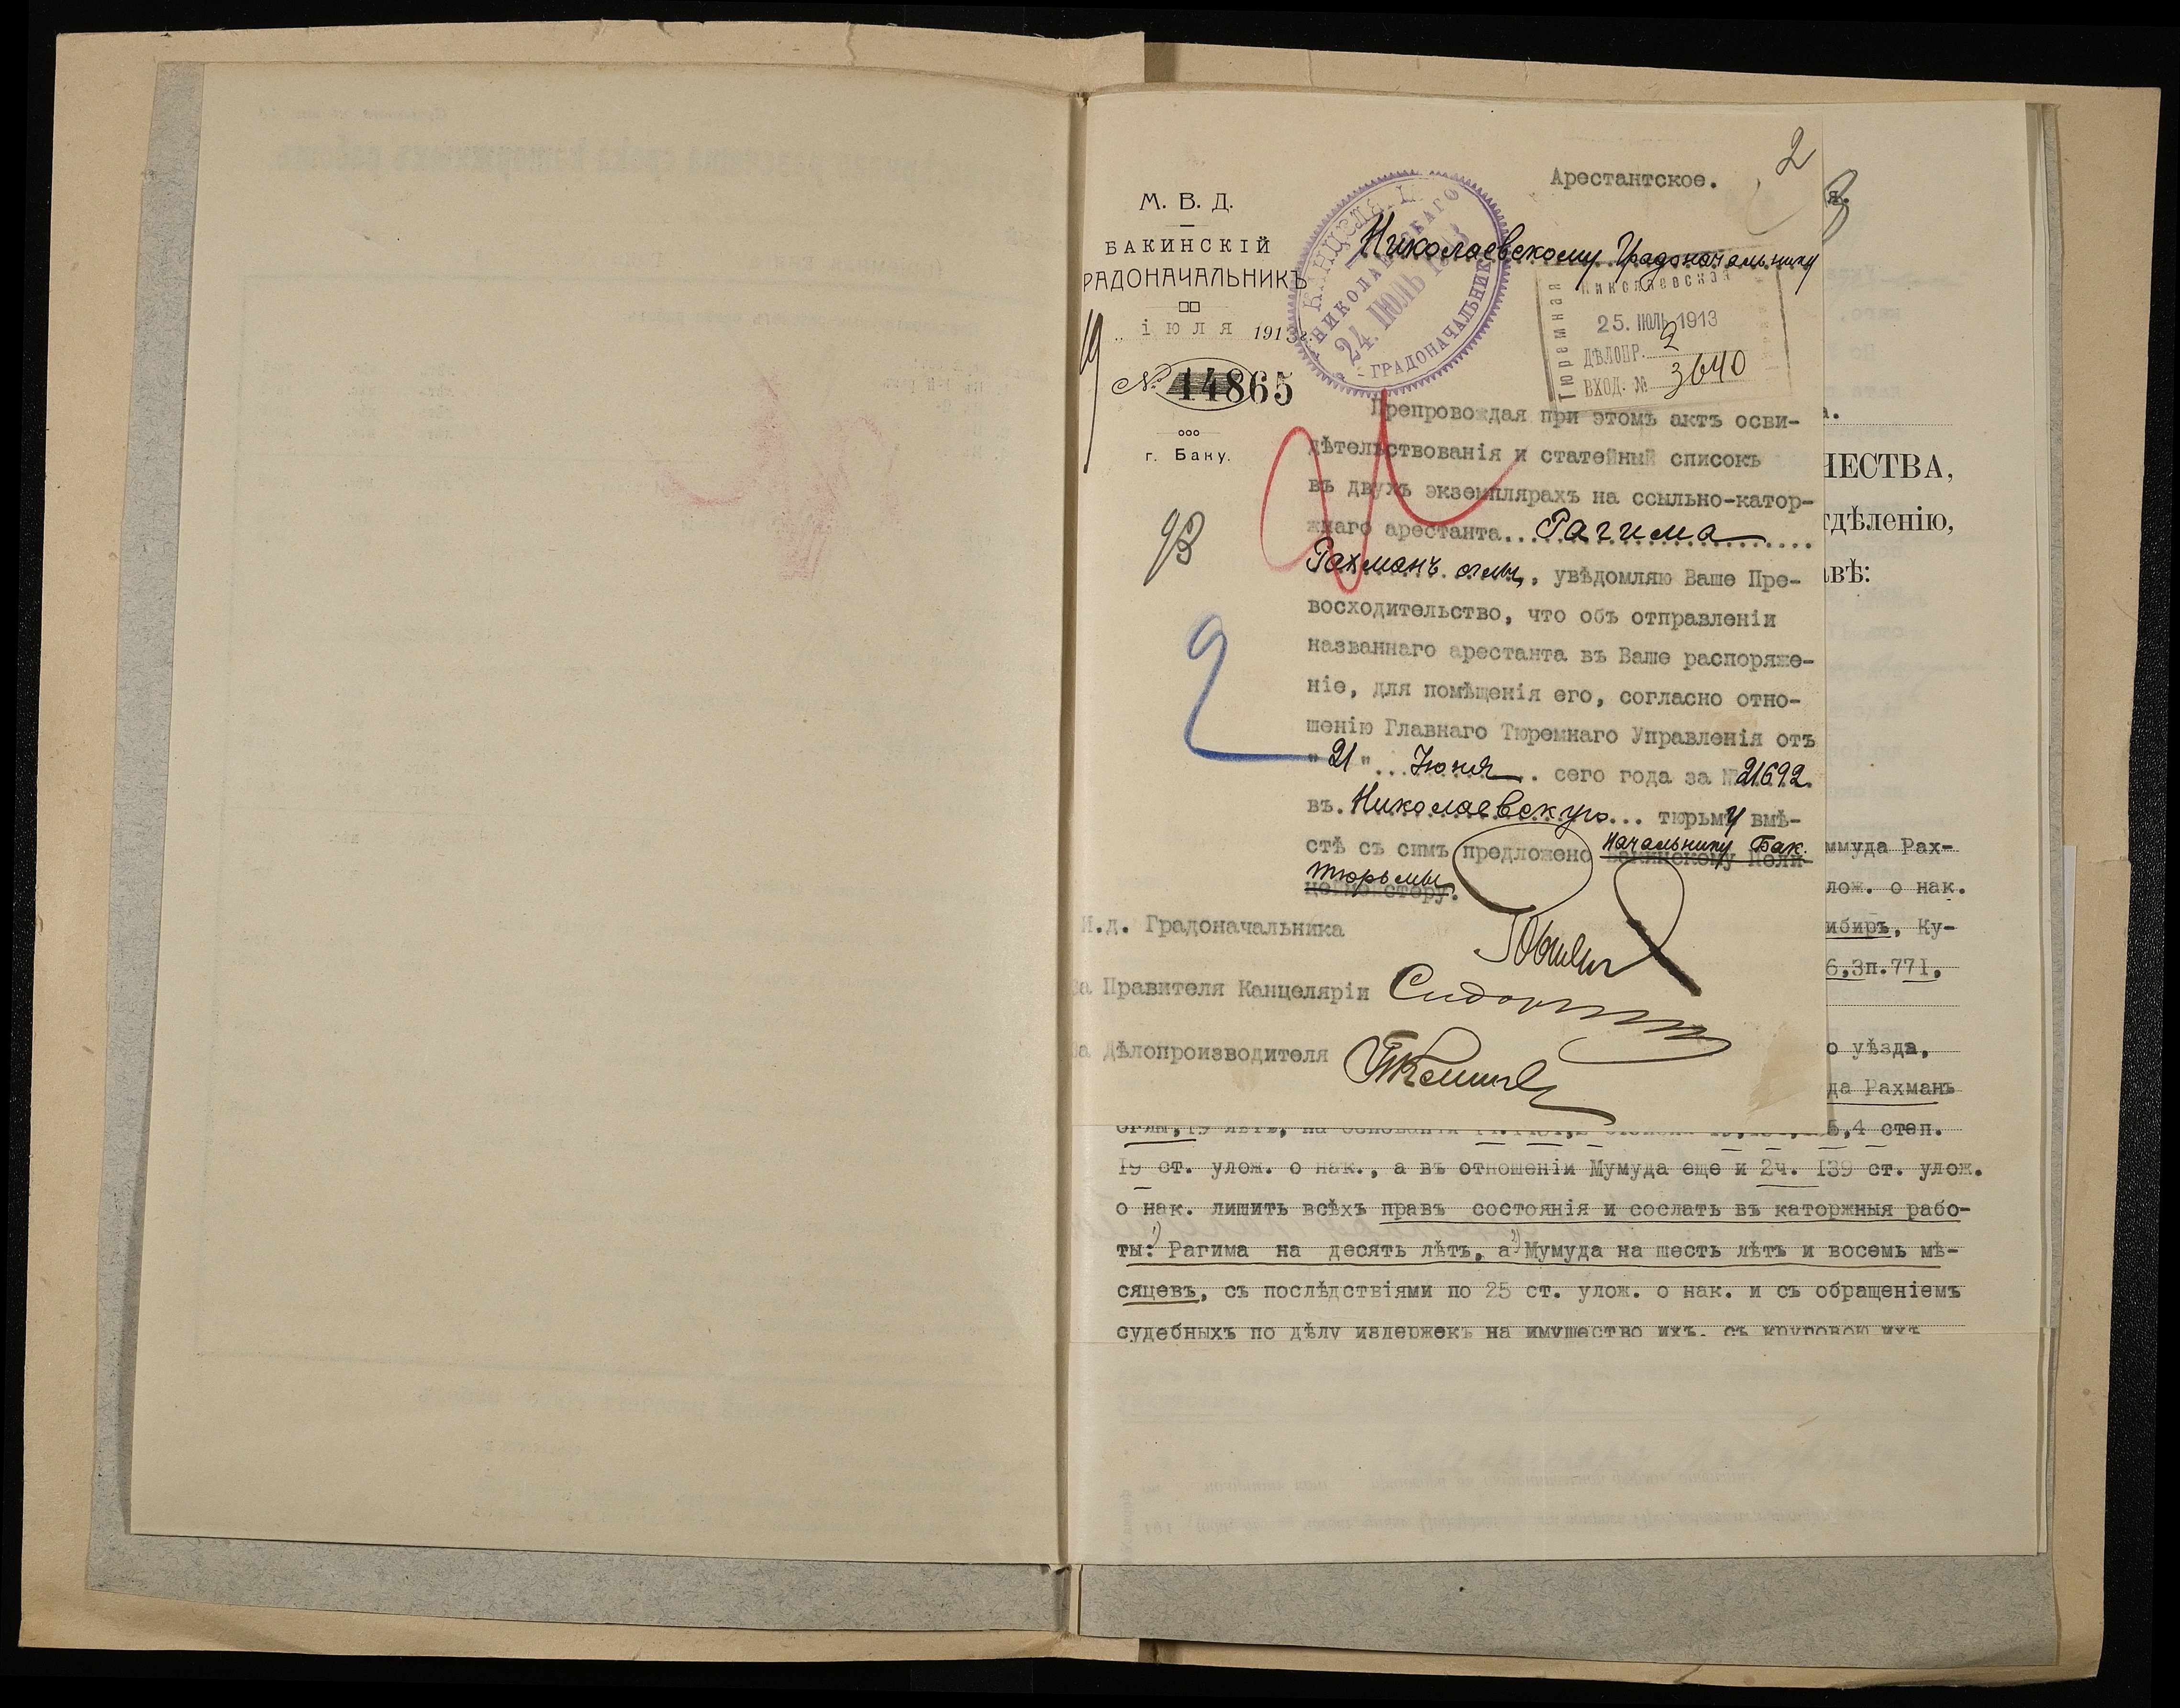 2
Арестантское.
М. В. Д.
БАКИНСКІЙ
РАДОНАЧАЛЬНИКЪ
іюля 1913 г.
19
№ 14865
г. Баку.
НИКОЛАЕВСКАГО
24. ІЮЛЬ 1913
ГРАДОНАЧАЛЬНИКА
Николаевскому Градоначальнику
Тюремная
Николаевской
25. ІЮЛЬ 1913
ДѢЛОПР. 2
ВХОД. № 3640
Препровождая при этомъ актъ осви-
дѣтельствованія и статейный списокъ
въ двухъ экземплярахъ на ссыльно-катор-
жнаго арестанта... Рагима
Рахманъ оглы, увѣдомляю Ваше Пре-
восходительство, что объ отправленіи
названнаго арестанта въ Ваше распоряже-
ніе, для помѣщенія его, согласно отно-
шенію Главнаго Тюремнаго Управленія отъ
"21"... Іюня... сего года за № 21692
въ. Николаевскую... тюрьму вмѣ-
стѣ съ симъ предложено Начальнику Бак.
Бакинскому Поли-
тюрьмы
цеймейстеру.
И.д. Градоначальника
За Правителя Канцеляріи
За Дѣлопроизводителя
2
я.
а.
ЧЕСТВА,
тдѣленію,
авѣ:
ммуда Рах-
лож. о нак.
ибирь, Ку-
6,3п.771,
о уѣзда,
да Рахманъ
оглы, 19 лѣтъ, на основаніи 5,4 степ.
19 ст. улож. о нак., а въ отношеніи Мумуда еще и 2ч. 139 ст. улож.
о нак. лишить всѣхъ правъ состоянія и сослать въ каторжныя рабо-
ты: 1) Рагима на десять лѣтъ, а 2) Мумуда на шесть лѣтъ и восемь мѣ-
сяцевъ, съ послѣдствіями по 25 ст. улож. о нак. и съ обращеніемъ
судебныхъ по дѣлу издержекъ на имущество ихъ, съ круговою ихъ